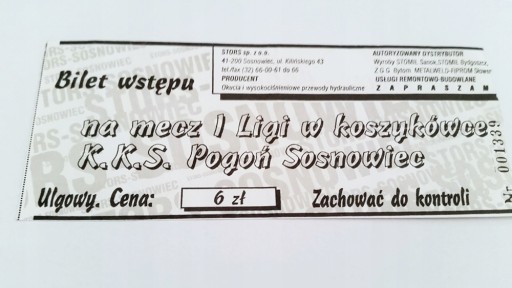 STORS sp. z o.o.
41-200 Sosnowiec, ul. Kilińskiego 43
tel./fax (32) 66-00-61 do 66
PRODUCENT
Okucia i wysokociśnieniowe przewody hydrauliczne
AUTORYZOWANY DYSTRYBUTOR
Wyroby STOMIL Sanok, STOMIL Bydgoszcz,
Z.G.G. Bytom, METALWELD-FIPROM
USŁUGI REMONTOWO-BUDOWLANE
ZAPRASZAM
Bilet wstępu
na mecz I Ligi w koszykówce
K.K.S. Pogoń Sosnowiec
Ulgowy. Cena: 6 zł Zachować do kontroli
Nr 001339